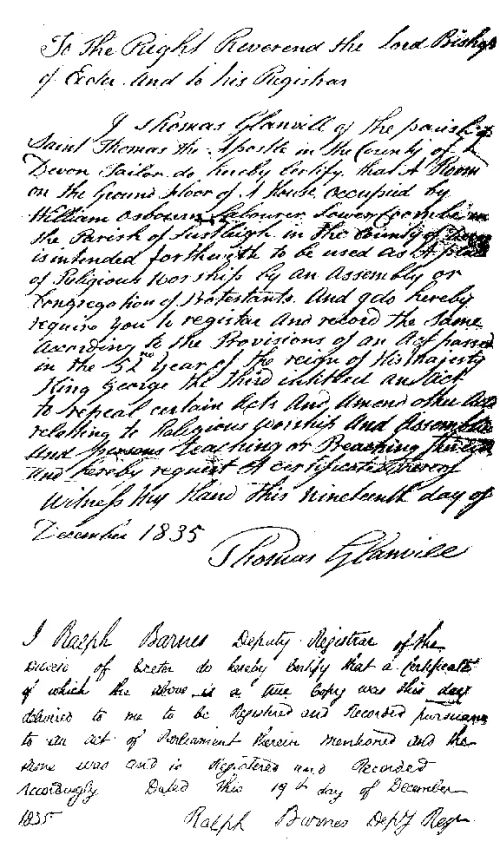 To The Right Reverend the Lord Bishop
of Exeter And to his Registrar
I Thomas Glanvill of the parish of
Saint Thomas the Apostle in the County of
Devon Tailor do hereby certify that A Room
on the Ground Floor of A House occupied by
William Osbourn Labourer Lower Coombe in
the Parish of in the County of Devon
is intended forthwith to be used as A place
of Religious Worship by an Assembly or
Congregation of Protestants. And I do hereby
require You to register And record the Same
According to the Provisions of an Act passed
in the 52nd Year of the reign of His Majesty
King George the third entitled an Act
to repeal certain Acts And amend other Acts
relating to Religious Worship And Assemblies
And persons teaching or Preaching therein
And hereby request A certificate thereof
Witness My Hand This Nineteenth day of
December 1835
Thomas Glanvill
I Ralph Barnes Deputy Registrar of the
Diocese of Exeter do hereby Certify that a Certificate
of which the above is a true Copy was this day
delivered to me to be Registered and Recorded pursuant
to an act of Parliament therein mentioned and the
same was and is Registered and Recorded
Accordingly Dated this 19th day of December
1835 Ralph Barnes Depy Regr